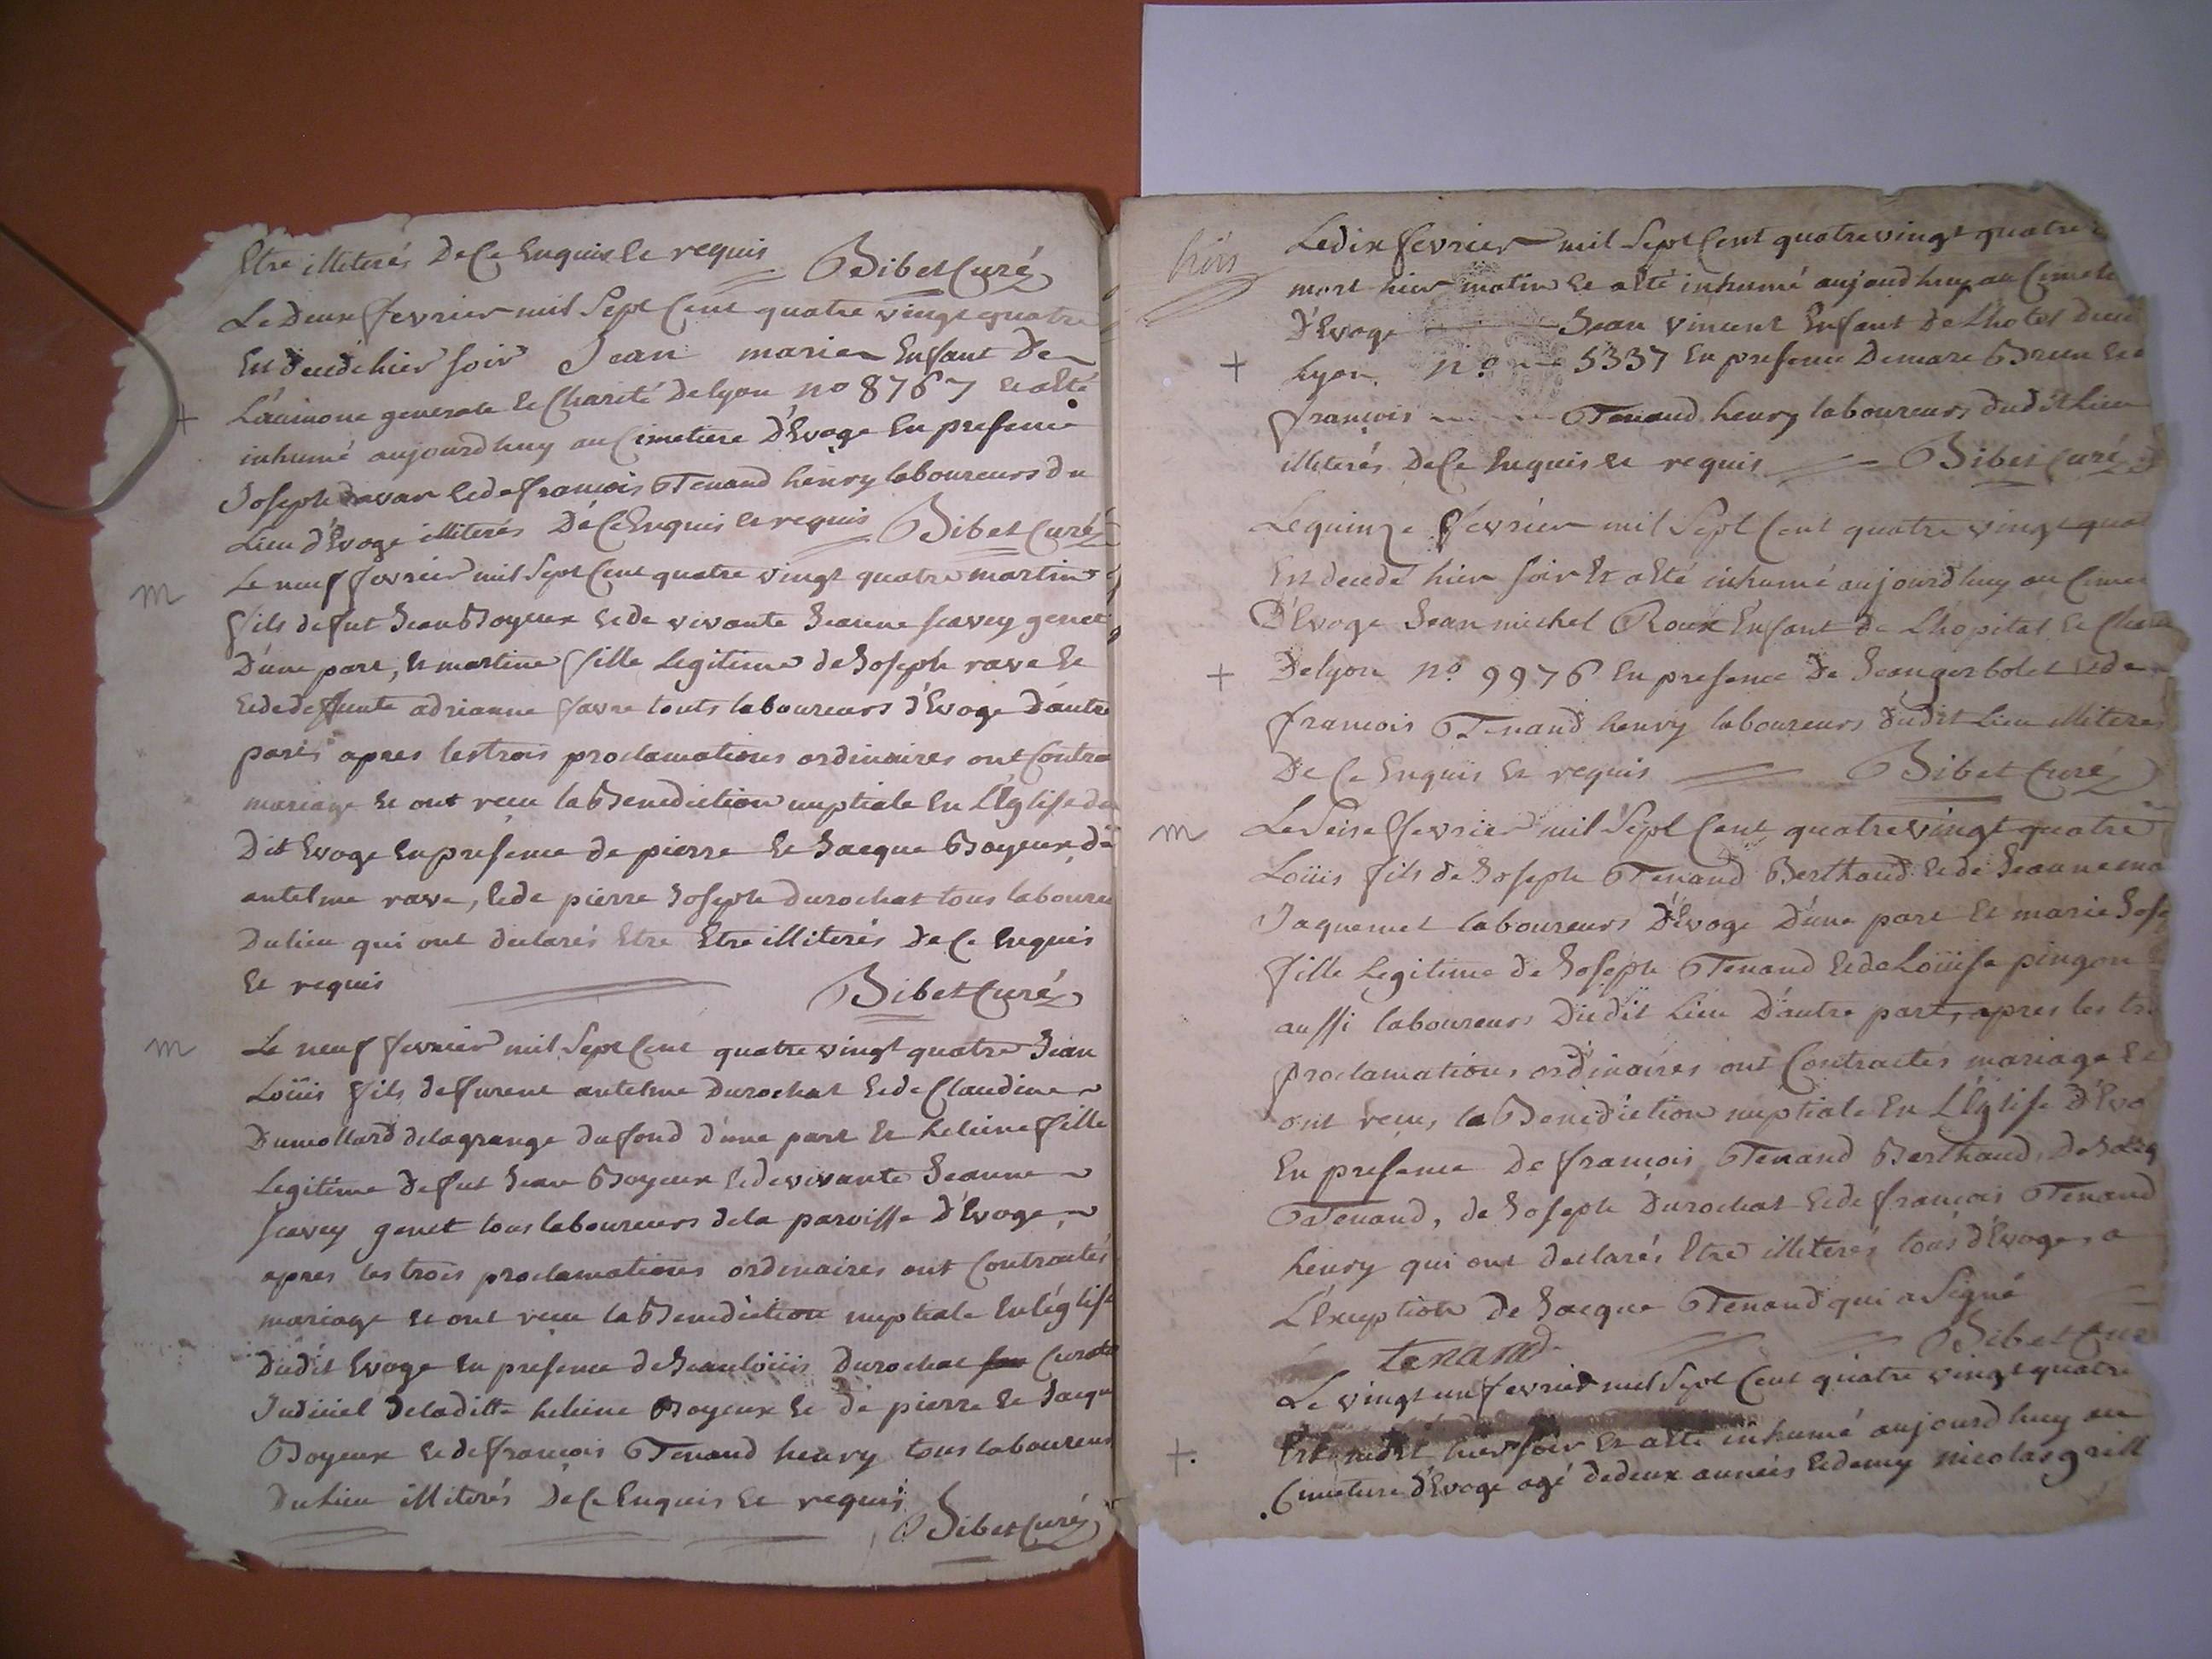 Etre illiterés De Ce Enquis et requis Bibet Curé
Le Deux fevrier mil Sept Cent quatre vingt quatre
Est decedé hier soir Jean marie Enfant De
L'aumone generale et Charité De lyon no 8767 et a été
inhumé aujourd huy au Cimetiere D'Evoge En presence
Joseph et de françois Tenand henry laboureurs du
Lieu d'Evoge illiterés De Ce Enquis et requis Bibet Curé
m Le neuf fevrier mil Sept Cent quatre vingt quatre martin
fils de fut Jean Boyeux et de vivante Jeanne scavey genet
D'une part, et martine fille Legitime de Joseph rave et
et de deffunte adrianne favre touts laboureurs d'Evoge D'autre
part apres les trois proclamations ordinaires ont Contra
mariage et ont reçu la Benediction nuptiale En L'Eglise du
Dit Evoge En presence de pierre et Jacque Boyeux d'
antelme rave, et de pierre Joseph Durochat tous laboureu
Du lieu qui ont declarés Etre Etre illiterés De Ce Enquis
et requis Bibet Curé
m Le neuf fevrier mil Sept Cent quatre vingt quatre Jean
Loüis fils de furent antelme Durochat et de Claudine
Dumollard de la grange du fond d'une part et heleine fille
Legitime de fut Jean Boyeux et de vivante Jeanne
scavey genet tous laboureurs de la paroisse D'Evoge
apres les trois proclamations ordinaires ont Contractés
mariage et ont reçu la Benediction nuptiale En l'églis
Dudit Evoge En presence de Jean loüis Durochat Curate
Judiciel de la ditte heleine Boyeux et de pierre et Jacqu
Boyeux et de françois Tenand henry tous laboureurs
Du Lieu illiterés De Ce Enquis et requis
Bibet Curé
Le dix fevrier mil Sept Cent quatre vingt quatre
mort hier matin et a été inhumé aujourd huy au Cimete
D'Evoge Jean vincent Enfant De L'hotel Dieu
+ Lyon no 5337 En presence De marc Brun et
françois Tenand henry laboureurs dudit Lieu
illiterés De Ce Enquis et requis Bibet Curé
Le quinze fevrier mil Sept Cent quatre vingt quat
Est decedé hier soir et a été inhumé aujourd huy au Cime
D'Evoge Jean michel Roux Enfant de L'hopital et Chari
+ De lyon no 9976 En presence De Jean gerbolet et de
françois Tenand henry laboureurs dudit Lieu illiteres
De Ce Enquis et requis Bibet Curé
m Le Seise fevrier mil Sept Cent quatre vingt quatre
Loüis fils de Joseph Tenand Berthaud et de Jeanne ma
Jaquemet laboureurs D'Evoge D'une part et marie Jose
fille Legitime de Joseph Tenand et de Loüise pingon
aussi laboureurs Dudit Lieu D'autre part, apres les tro
proclamations ordinaires ont Contractés mariage et
ont reçu, la Benediction nuptiale En L'Eglise D'Evo
En presence De françois Tenand Berthaud, De Jacq
Tenand, de Joseph Durochat et de françois Tenand
henry qui ont declarés Etre illiterés tous d'Evoge, a
L'Exception de Jacque Tenand qui a Signé
tenand Bibet Cure
Le vingt un fevrier mil Sept Cent quatre vingt quatre
+. hier soir et a été inhumé aujourd huy au
Cimetiere d'Evoge agé de deux années et demy nicolas grill